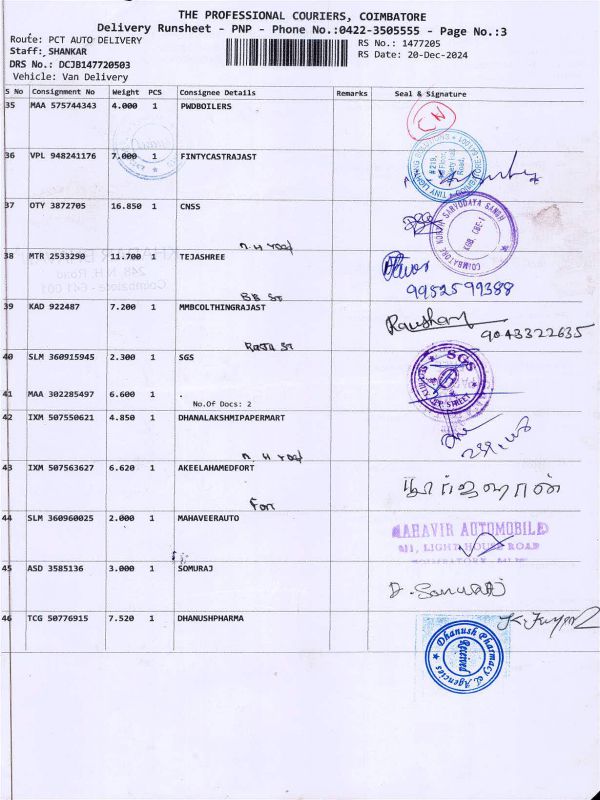 THE PROFESSIONAL COURIERS, COIMBATORE
Delivery Runsheet - PNP - Phone No.:0422-3505555 - Page No.:3
Route: PCT AUTO DELIVERY
Staff: SHANKAR
DRS No.: DCJB147720503
Vehicle: Van Delivery
RS No.: 1477205
RS Date: 20-Dec-2024
S No Consignment No Weight PCS Consignee Details Remarks Seal & Signature
35 MAA 575744343 4.000 1 PWDBOILERS
36 VPL 948241176 7.000 1 FINTYCASTRAJAST
TINY LIGHTING SOLUTIONS
37 OTY 3872705 16.850 1 CNSS
N.H road
COIMBATORE NORTH SARVODAYA SANGH
CBE-1
38 MTR 2533290 11.700 1 TEJASHREE
BB St
9952599388
39 KAD 922487 7.200 1 MMBCOLTHINGRAJAST
Raja St
Raushan
9043322635
40 SLM 360915945 2.300 1 SGS
SGS
STREET
41 MAA 302285497 6.600 1
No.Of Docs: 2
42 IXM 507550621 4.850 1 DHANALAKSHMIPAPERMART
N.H road
43 IXM 507563627 6.620 1 AKEELAHAMEDFORT
Fort
நூர்ஜஹான்
44 SLM 360960025 2.000 1 MAHAVEERAUTO
MAHAVIR AUTOMOBILE
LIGHT HOUSE ROAD
45 ASD 3585136 3.000 1 SOMURAJ
46 TCG 50776915 7.520 1 DHANUSHPHARMA
Dhanush Pharmacy Agencies
Received